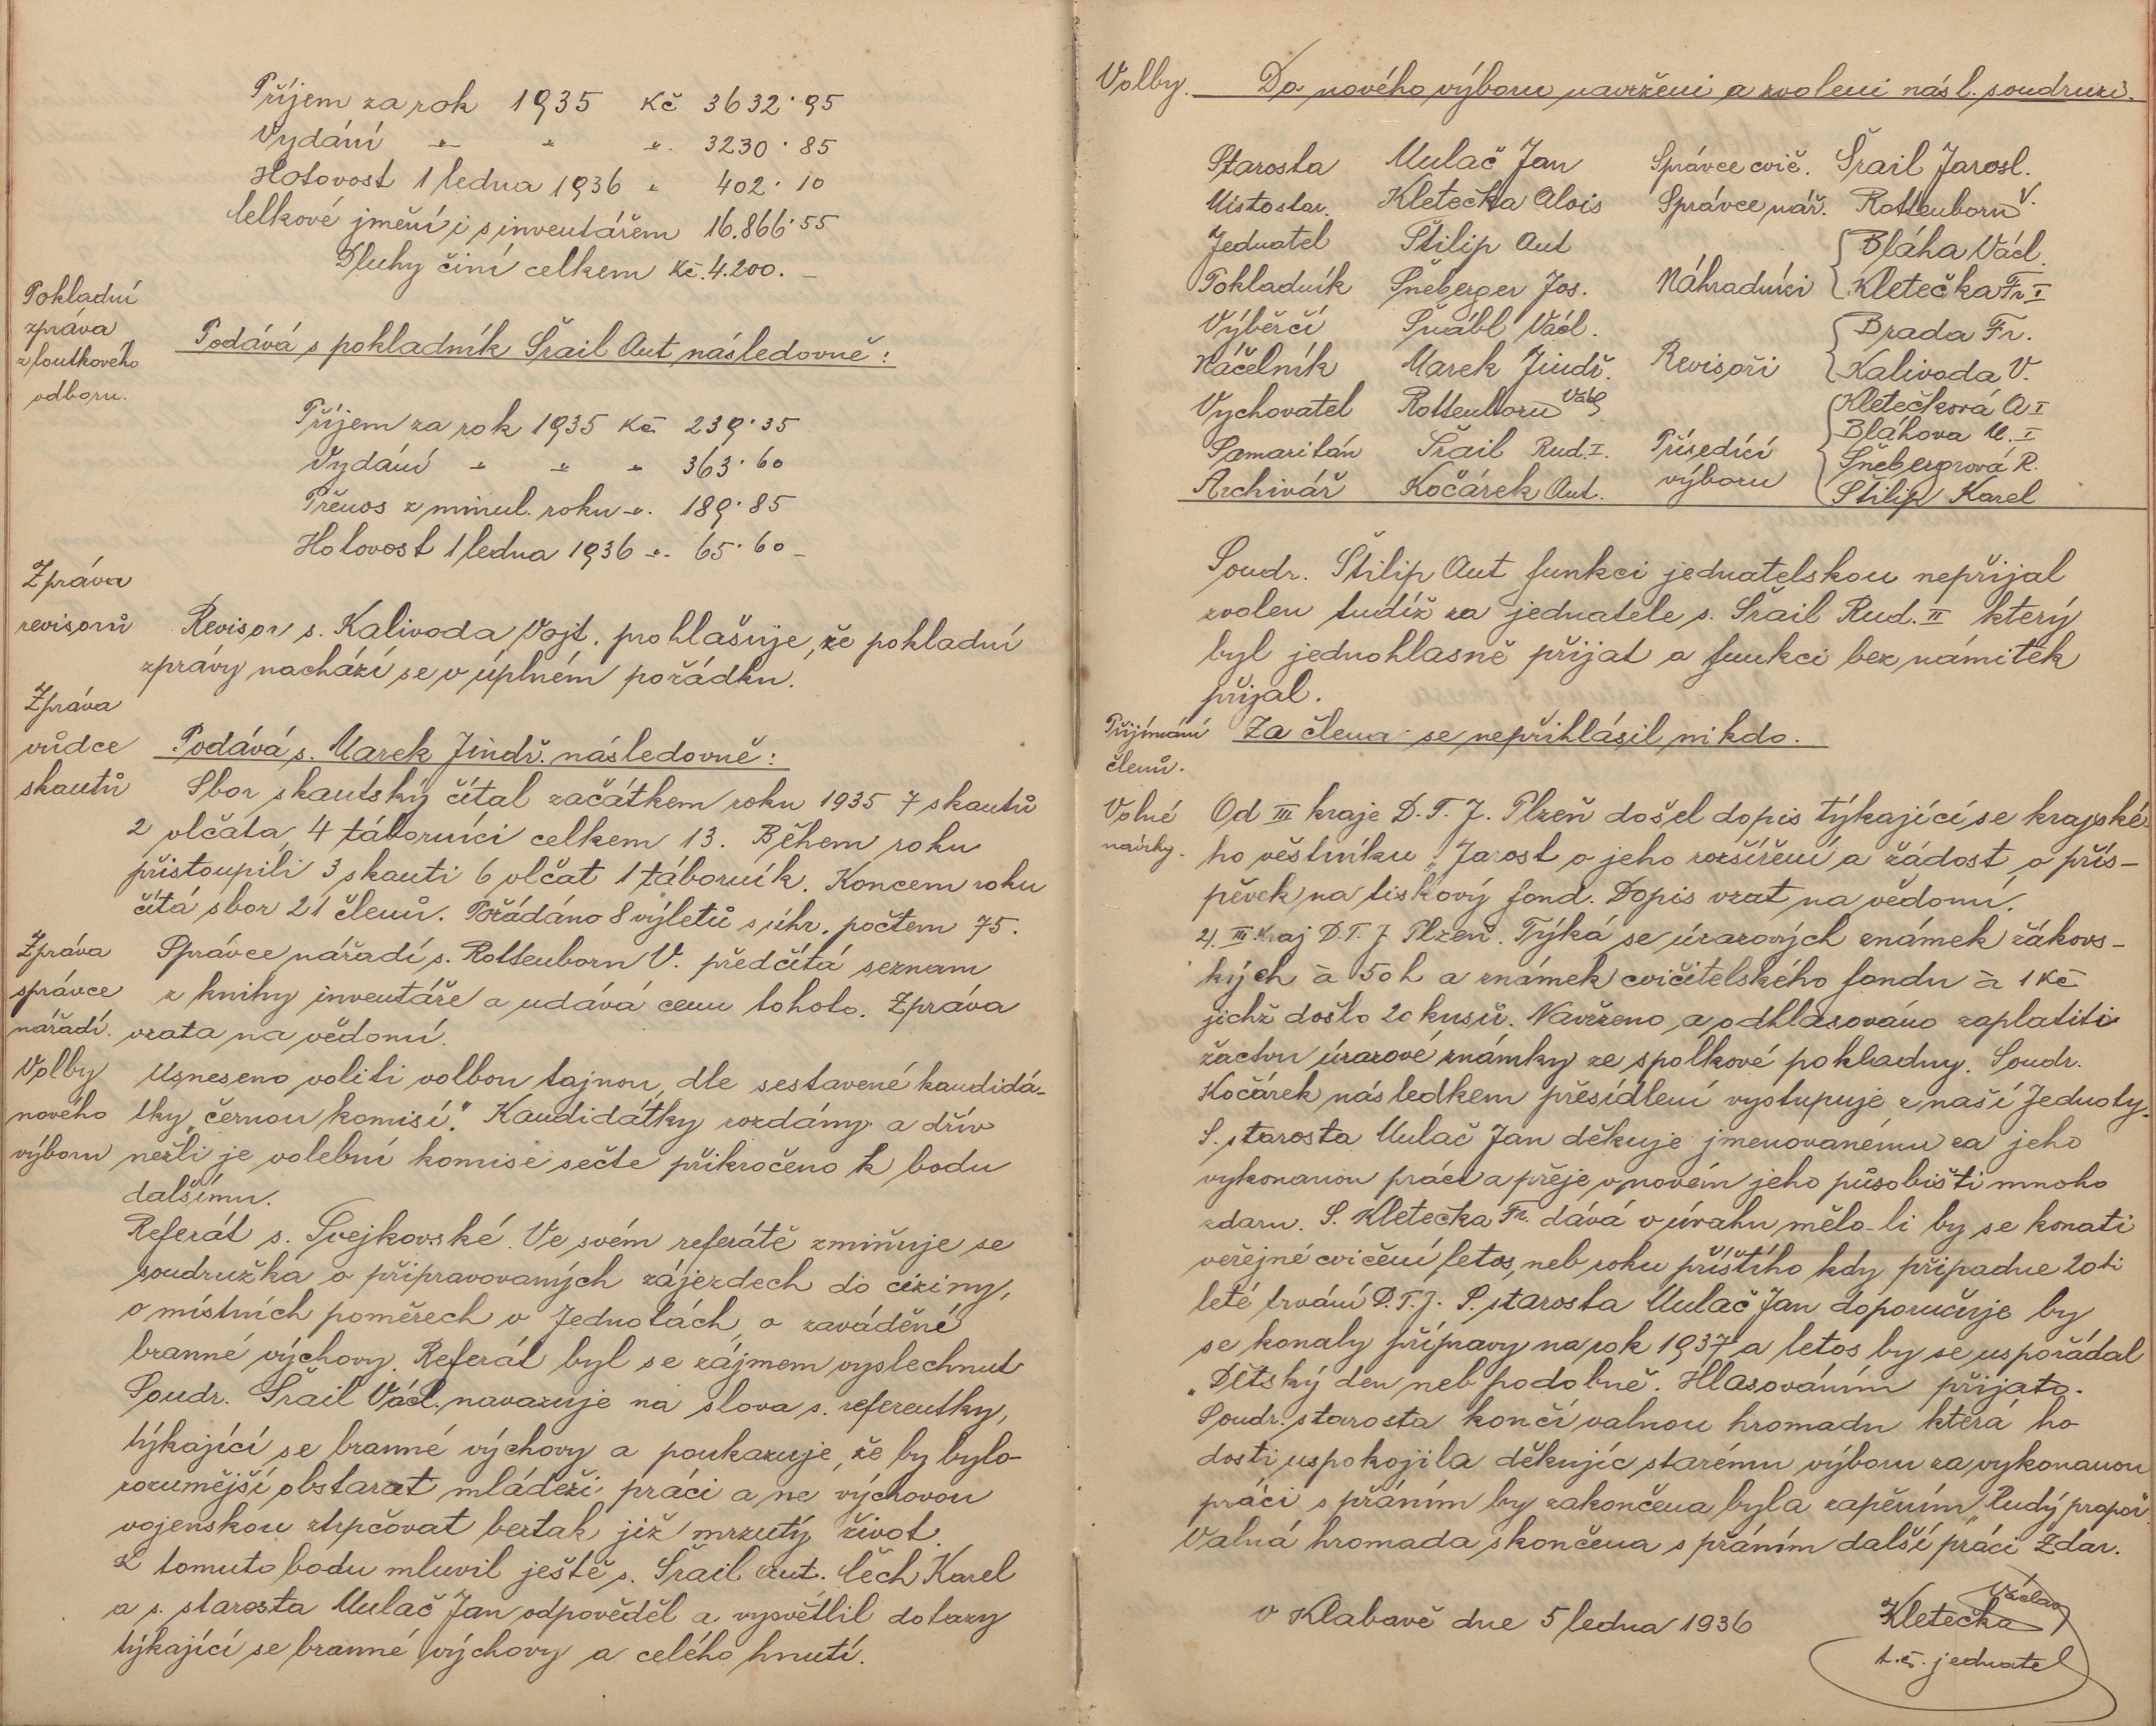 Příjem za rok 1935 Kč 3632·95
Vydání " " " 3230·85
Hotovost 1 ledna 1936 " 402·10
Celkové jmění i s inventářem 16.866·55
Dluhy činí celkem Kč. 4.200.–
Pokladní
zpráva
z loutkového
odboru.
Podává s pokladník Šrail Ant následovně:
Příjem za rok 1935 Kč 239·35
Vydání " " " 363·60
Přenos z minul. roku " 189·85
Hotovost 1 ledna 1936 " 65·60 –
Zpráva
revisorů
Revisor s. Kalivoda Vojt. prohlašuje, že pokladní
zprávy nachází se v úplném pořádku.
Zpráva
vůdce
skautů
Podává s. Marek Jindř. následovně:
Sbor skautský čítal začátkem roku 1935 7 skautů
2 vlčata, 4 táborníci celkem 13. Během roku
přistoupili 3 skauti 6 vlčat 1 táborník. Koncem roku
čítá sbor 21 členů. Pořádáno 8 výletů s úhr. počtem 75.
Zpráva
správce
nářadí.
Správce nářadí s. Rottenborn V. předčítá seznam
z knihy inventáře a udává cenu tohoto. Zpráva
vzata na vědomí.
Volby
nového
výboru
Usneseno voliti volbou tajnou, dle sestavené kandidá-
tky „černou komisí." Kandidátky rozdány a dřív
nežli je volební komise sečte přikročeno k bodu
dalšímu.
Referát s. Svejkovské. Ve svém referátě zmiňuje se
soudružka o připravovaných zájezdech do ciziny,
o místních poměrech v Jednotách, o zavádění
branné výchovy. Referát byl se zájmem vyslechnut
Soudr. Šrail Václ. navazuje na slova s. referentky,
týkající se branné výchovy a poukazuje, že by bylo
rozumější obstarat mládeži práci a ne výchovou
vojenskou ztrpčovat beztak již mrzutý život.
K tomuto bodu mluvil ještě s. Šrail Ant. Čech Karel
a s. starosta Mulač Jan odpověděl a vysvětlil dotazy
týkající se branné výchovy a celého hnutí.
Volby. Do nového výboru navrženi a zvoleni násl. soudruzi.
Starosta Mulač Jan Správce cvič. Šrail Jarosl.
Místostar. Kletečka Alois Správce nář. Rottenborn V.
Jednatel Štilip Ant Bláha Václ.
Pokladník Šneberger Jos. Náhradníci Kletečka Fr I
Výběrčí Šnábl Václ. Brada Fr.
Náčelník Marek Jindř. Revisoři Kalivoda V.
Vychovatel Rottenborn Václ Kletečková A I
Bláhova M. I
Samaritán Šrail Rud. I. Přísedící Šnebergrová R.
Archivář Kočárek Ant. výboru Štilip Karel
Soudr. Štilip Ant funkci jednatelskou nepřijal
zvolen tudíž za jednatele s. Šrail Rud. II který
byl jednohlasně přijat a funkci bez námitek
přijal.
Přijímání
členů.
Za člena se nepřihlásil nikdo.
Volné
návrhy.
Od III kraje D.T.J. Plzeň došel dopis týkající se krajské-
ho věstníku „Jarost o jeho rozšíření a žádost o přís-
pěvek na tiskový fond. Dopis vzat na vědomí.
2). III Kraj D.T.J Plzeň. Týká se úrazových známek žákovs-
kých à 50 h a známek cvičitelského fondu à 1 Kč
jichž došlo 20 kusů. Navrženo a odhlasováno zaplatiti
žactvu úrazové známky ze spolkové pokladny. Soudr.
Kočárek následkem přesídlení vystupuje z naší Jednoty.
S. starosta Mulač Jan děkuje jmenovanému za jeho
vykonanou práci a přeje v novém jeho působišti mnoho
zdaru. S. Kletečka Fr. dává v úvahu mělo-li by se konati
veřejné cvičení letos, neb roku příštího kdy připadne 20ti
leté trvání D.T.J. S. starosta Mulač Jan doporučuje by
se konaly přípravy na rok 1937 a letos by se uspořádal
„Dětský den neb podobně. Hlasováním přijato.
Soudr. starosta končí valnou hromadu která ho
dosti uspokojila děkujíc starému výboru za vykonanou
práci s přáním by zakončena byla zapěním „Rudý prapor.
Valná hromada skončena s přáním další práci Zdar.
v Klabavě dne 5 ledna 1936
Kletečka Václav
t.č. jednatel